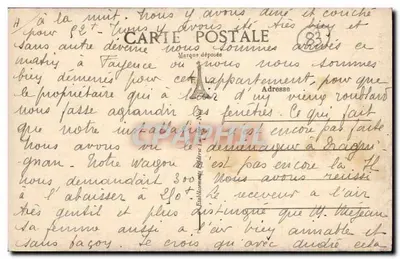 à la nuit. Nous y avons diné et couché
pour 52f Nous y avons été très bien et
CARTE POSTALE
83
sans autre devenue nous sommes arrivés ce
Marque déposée
matin à Fayence où nous nous sommes
bien démenés pour cet appartement, pour que
Adresse
le propriétaire qui a l'air d'un vieux
nous fasse agrandir les fenêtres. Ce qui fait
que notre installation n'est encore pas faite
CPARAMA
Nous avons vu le déménageur à Dragui
gnan. Notre wagon n'est pas encore là. Il
nous demandait 300f Nous avons réussi
à l'abaisser à 250f Le receveur a l'air
très gentil et plus distingué que M. Mejean
sa femme aussi a l'air bien aimable et
sans façon. Je crois qu'avec cela